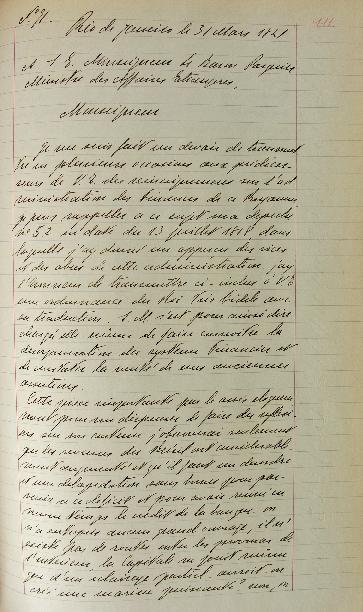 Nº 91.
111
Rio de Janeiro le 31 Mars 1821
A S. E. Monseigneur le Baron Pasquier
Ministre des Affaires Etrangères,
Monseigneur
Je me suis fait un devoir de transmet
tre en plusieures occasions aux prédéces-
seurs de V. E. des renseignements sur l'ad
ministration des finances de ce Royaume,
je puis rappeller à ce sujet ma dépêche
nº 52 en date du 13 juillet 1818 dans
laquelle j'ai donné un apperçu des vices
et des abus de cette administration, j'ai
l'honneur de transmettre ci-inclus à V. E
une ordonnance du Roi très fidèle
sa traduction. S. M s'est pour ainsi dire
chargé elle même de faire connoître la
désorganisation du système financier et
de constater la vérité de mes anciennes
assertions.
Cette pièce importante par le sens
pour me dispenser de faire des réflexi-
ons sur son contenu j'observerai seulement
que les revenus du Brésil ont considérable
ment augmenté et qu'il faut un désordre
et une dilapidation sans bornes pour par-
venir à ce déficit et pour avoir ruiné en
même temps le crédit de la banque. on
n'a entrepris aucun grand ouvrage, il n'
existe pas de routes entre les provinces de
l'intérieur, la Capitale ne jouit même
que d'un éclairage partiel. auroit on
créé une marine puissante? non, on